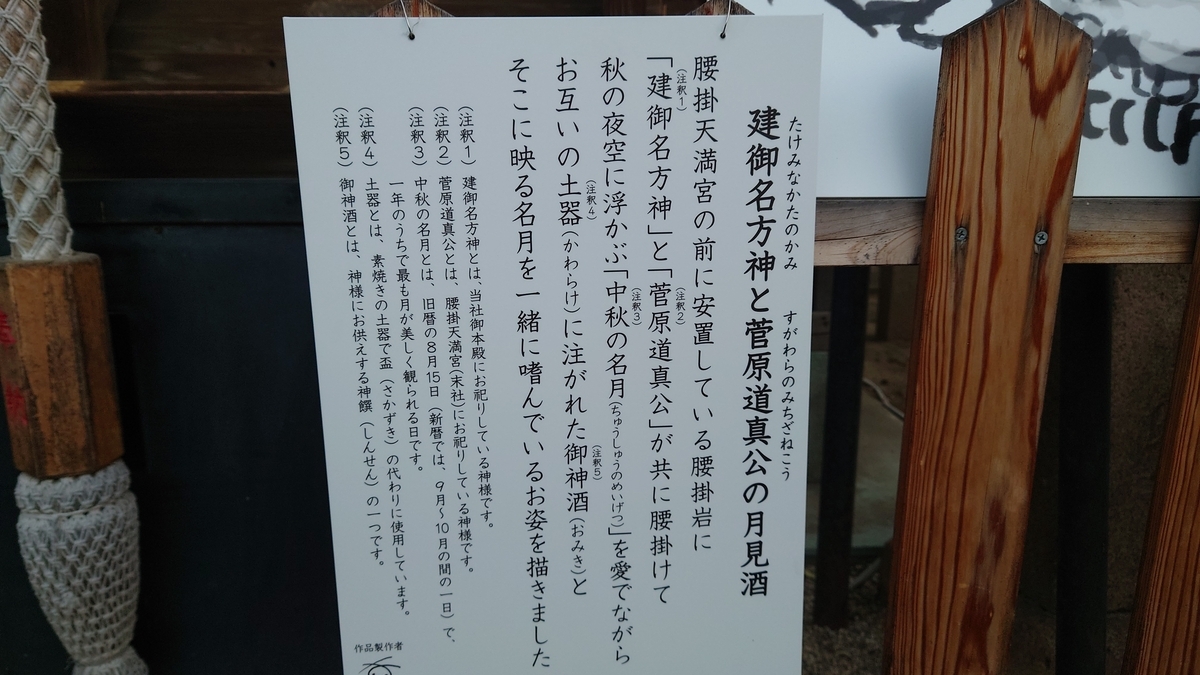 たけみなかたのかみ すがわらのみちざねこう
建御名方神と菅原道真公の月見酒
腰掛天満宮の前に安置している腰掛岩に
(注釈1) (注釈2)
「建御名方神」と「菅原道真公」が共に腰掛けて
(注釈3)
秋の夜空に浮かぶ「中秋の名月(ちゅうしゅうのめいげつ)」を愛でながら
(注釈4) (注釈5)
お互いの土器(かわらけ)に注がれた御神酒(おみき)と
そこに映る名月を一緒に嗜んでいるお姿を描きました
(注釈1) 建御名方神とは、当社御本殿にお祀りしている神様です。
(注釈2) 菅原道真公とは、腰掛天満宮(末社)にお祀りしている神様です。
(注釈3) 中秋の名月とは、旧暦の8月15日(新暦では、9月~10月の間の一日)で、
一年のうちで最も月が美しく観られる日です。
(注釈4) 土器とは、素焼きの土器で盃(さかずき)の代わりに使用しています。
(注釈5) 御神酒とは、神様にお供えする神饌(しんせん)の一つです。
作品製作者